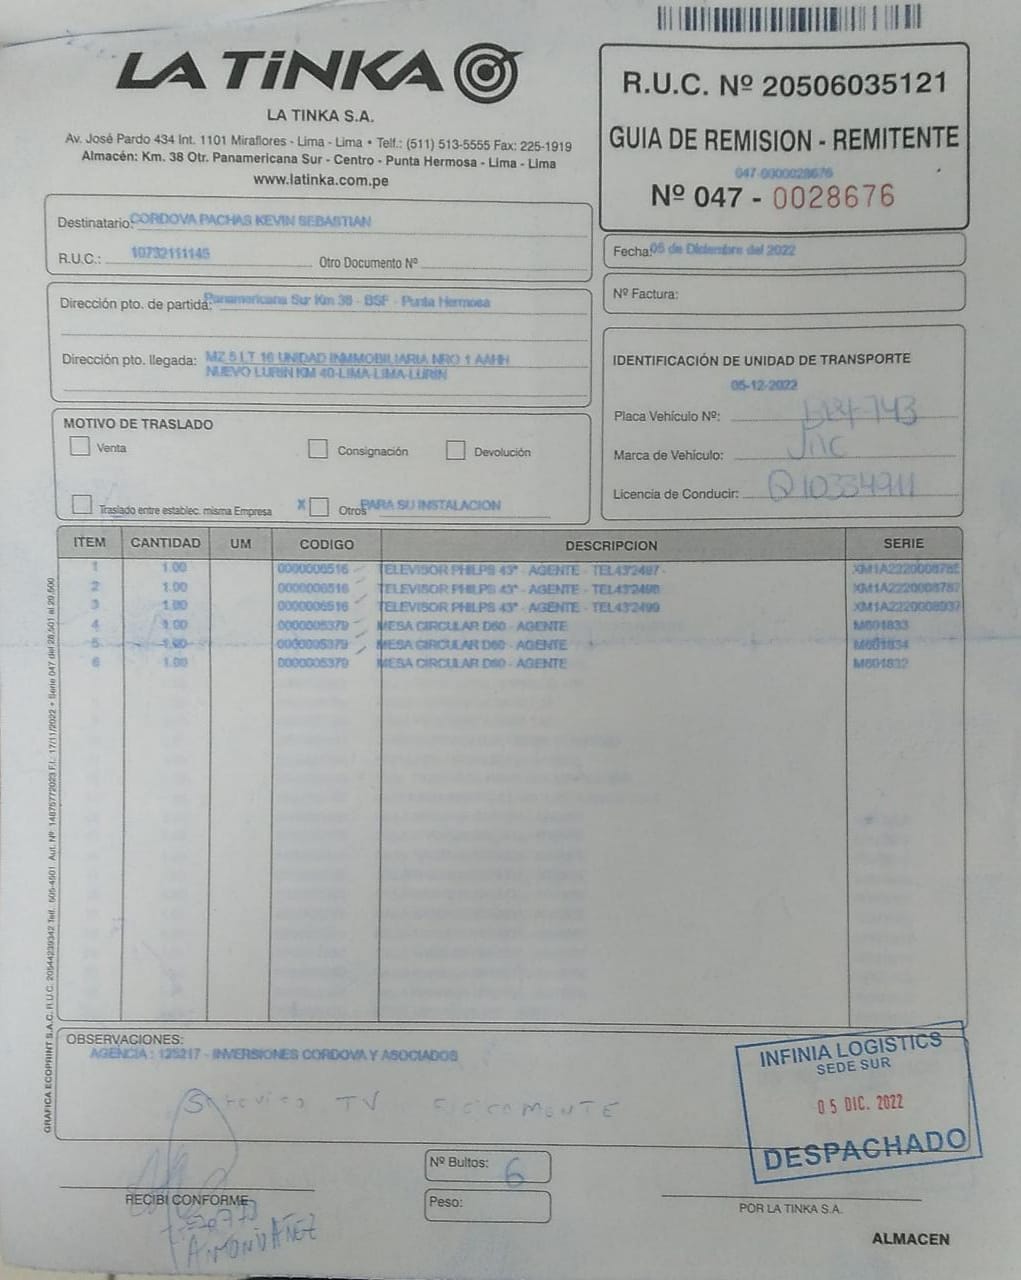 LA TiNKA
LA TINKA S.A.
Av. José Pardo 434 Int. 1101 Miraflores - Lima - Lima • Telf.: (511) 513-5555 Fax: 225-1919
Almacén: Km. 38 Otr. Panamericana Sur - Centro - Punta Hermosa - Lima - Lima
www.latinka.com.pe
R.U.C. Nº 20506035121
GUIA DE REMISION - REMITENTE
047-0000028676
Nº 047 - 0028676
Destinatario: CORDOVA PACHAS KEVIN SEBASTIAN
R.U.C.: 10732111145 Otro Documento Nº
Fecha: 05 de Diciembre del 2022
Nº Factura:
Dirección pto. de partida: Panamericana Sur Km 38 - BSF - Punta Hermosa
Dirección pto. llegada: MZ 5 LT 16 UNIDAD INMMOBILIARIA NRO 1 AAHH
NUEVO LURIN KM 40-LIMA-LIMA-LURIN
IDENTIFICACIÓN DE UNIDAD DE TRANSPORTE
05-12-2022
Placa Vehículo Nº:
Marca de Vehículo: JAC
Licencia de Conducir: Q10334911
MOTIVO DE TRASLADO
Venta Consignación Devolución
Traslado entre establec. misma Empresa X Otros PARA SU INSTALACION
ITEM CANTIDAD UM CODIGO DESCRIPCION SERIE
1 1.00 0000006516 TELEVISOR PHILPS 43" - AGENTE - TEL432497
2 1.00 0000006516 TELEVISOR PHILPS 43" - AGENTE - TEL432498
3 1.00 0000006516 TELEVISOR PHILPS 43" - AGENTE - TEL432499
4 1.00 0000005379 MESA CIRCULAR D60 - AGENTE M601833
5 1.00 0000005379 MESA CIRCULAR D60 - AGENTE M601834
6 1.00 0000005379 MESA CIRCULAR D60 - AGENTE M601832
GRAFICA ECOPRINT S.A.C. R.U.C. 20544239342 Telf.: 505-4501 Aut. Nº: 14875772023 F.I.: 17/11/2022 • Serie 047 del 28,501 al 29,500
OBSERVACIONES:
AGENCIA : 125217 - INVERSIONES CORDOVA Y ASOCIADOS
TV
INFINIA LOGISTICS
SEDE SUR
05 DIC. 2022
DESPACHADO
Nº Bultos: 6
Peso:
RECIBI CONFORME
POR LA TINKA S.A.
ALMACEN